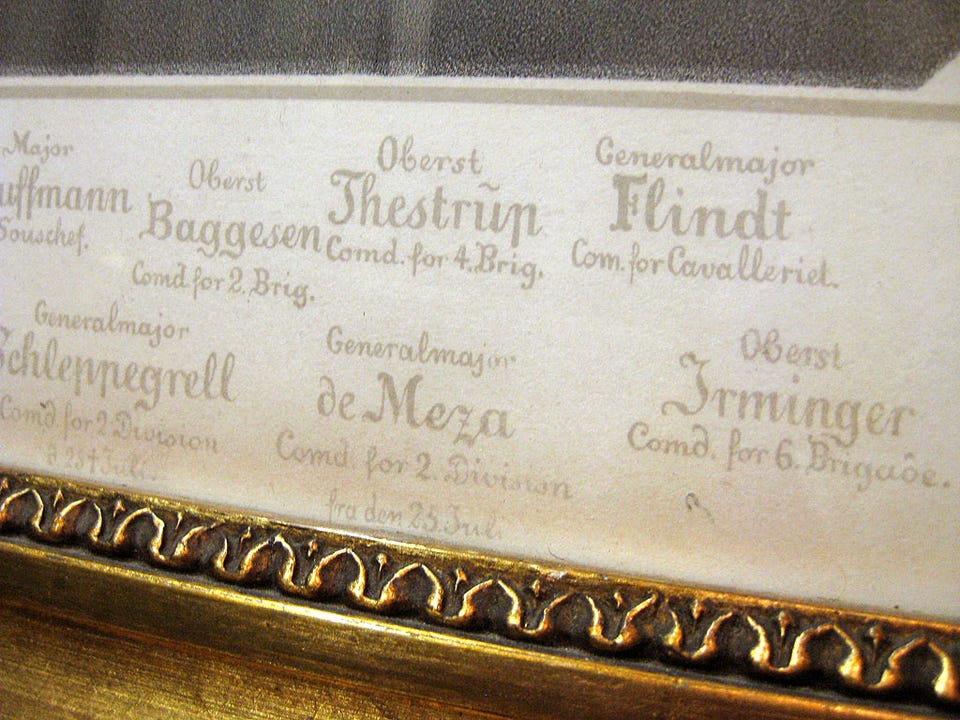 Major
uffmann
Souschef.
Oberst
Baggesen
Comd for 2. Brig.
Oberst
Thestrŭp
Comd. for 4. Brig.
Generalmajor
Flindt
Com. for Cavalleriet.
Generalmajor
Schleppegrell
Comd for 2 Division
Generalmajor
de Meza
Comd. for 2. Division
fra den 25. Jul.
Oberst
Irminger
Comd. for 6. Brigade.